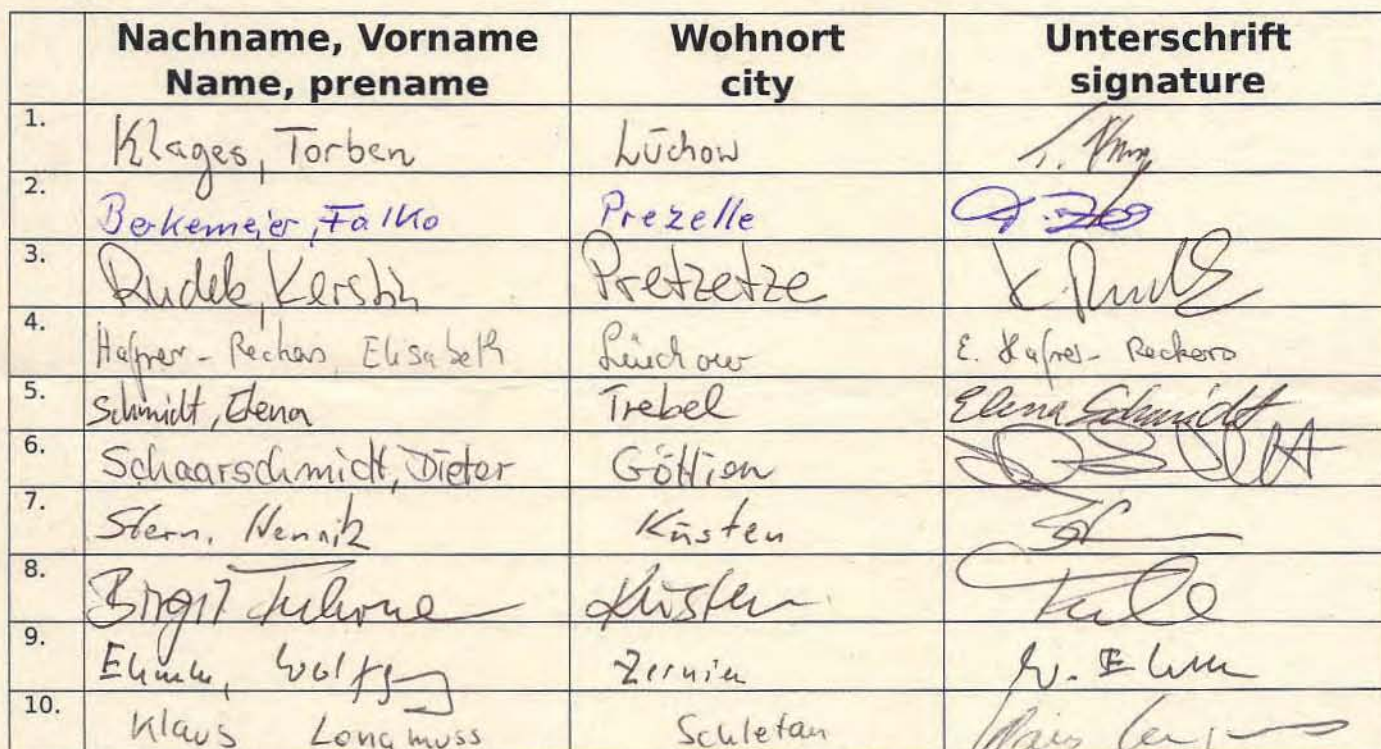 Nachname, Vorname Wohnort Unterschrift
Name, prename city signature
1. Klages, Torben Lüchow
2. Berkemeier, Falko Prezelle
3. Rudek, Kerstin Pretzetze K. Rudek
4. Hafner-Reckers, Elisabeth Lüchow E. Hafner-Reckers
5. Schmidt, Elena Trebel Elena Schmidt
6. Schaarschmidt, Dieter Göttien
7. Stern, Hennik Küsten
8. Birgit Küsten
9. Ehmke, Wolfgang Zernien W. Ehmke
10. Klaus Longmuss Schletau